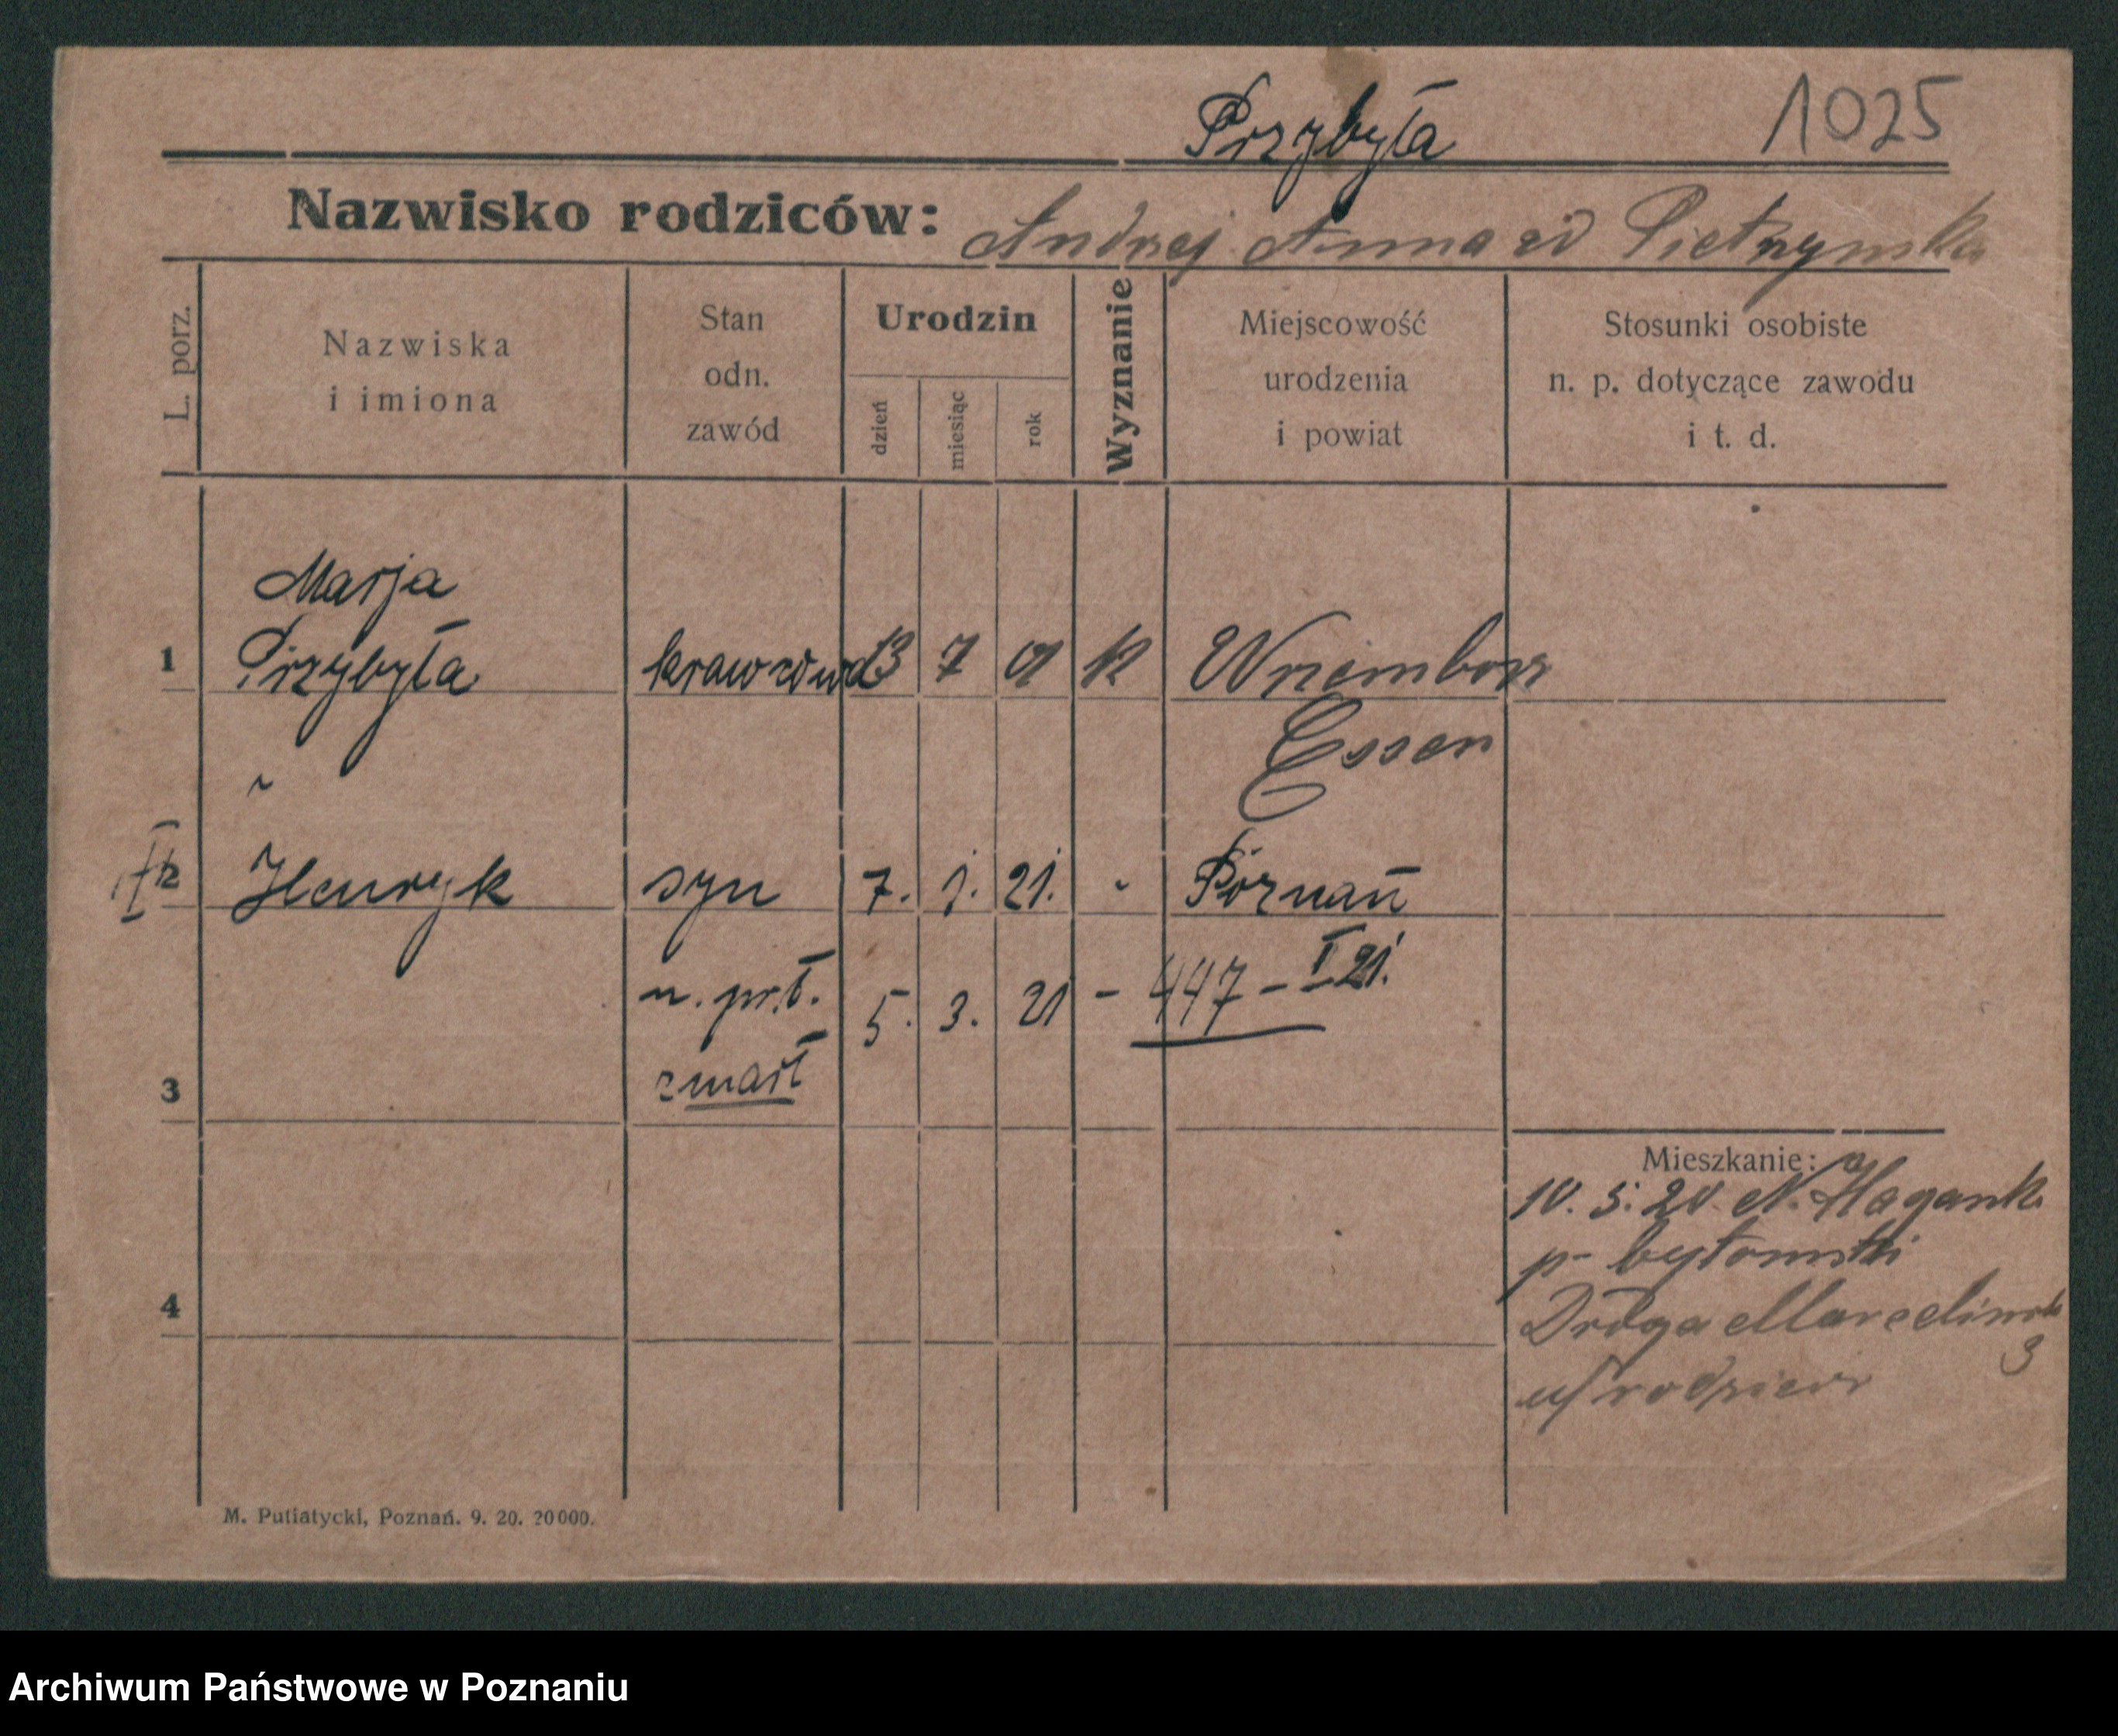 Przybyła
1025
Nazwisko rodziców: Andrzej Anna zd Pietrzynska
L. porz.
Nazwiska
i imiona
Stan
odn.
zawód
Urodzin
dzień
miesiąc
rok
Wyznanie
Miejscowość
urodzenia
i powiat
Stosunki osobiste
n. p. dotyczące zawodu
i t. d.
Marja
1 Przybyła krawcowa 13 7 01 k
Essen
"
2 Henryk syn 7. 1. 21. " Poznań
n. prt. 5. 3. 21 – 447 – I 21.
3 zmarł
Mieszkanie:
10. 5. 20
p. bytomski
4 Droga Marcelińsk
3
u/ rodziców
M. Putiatycki, Poznań. 9. 20. 20000.
Archiwum Państwowe w Poznaniu